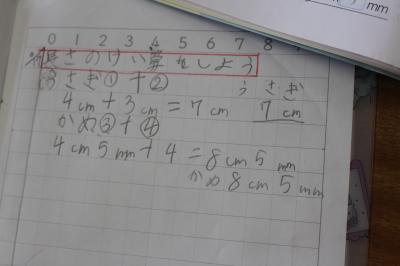 mm
0 1 2 3 4 5 6 7 8
長さのけい算をしよう
うさぎ①+② うさぎ
4cm+3cm=7cm 7cm
かめ③+④
4cm5mm+4=8cm5mm
かめ8cm5mm